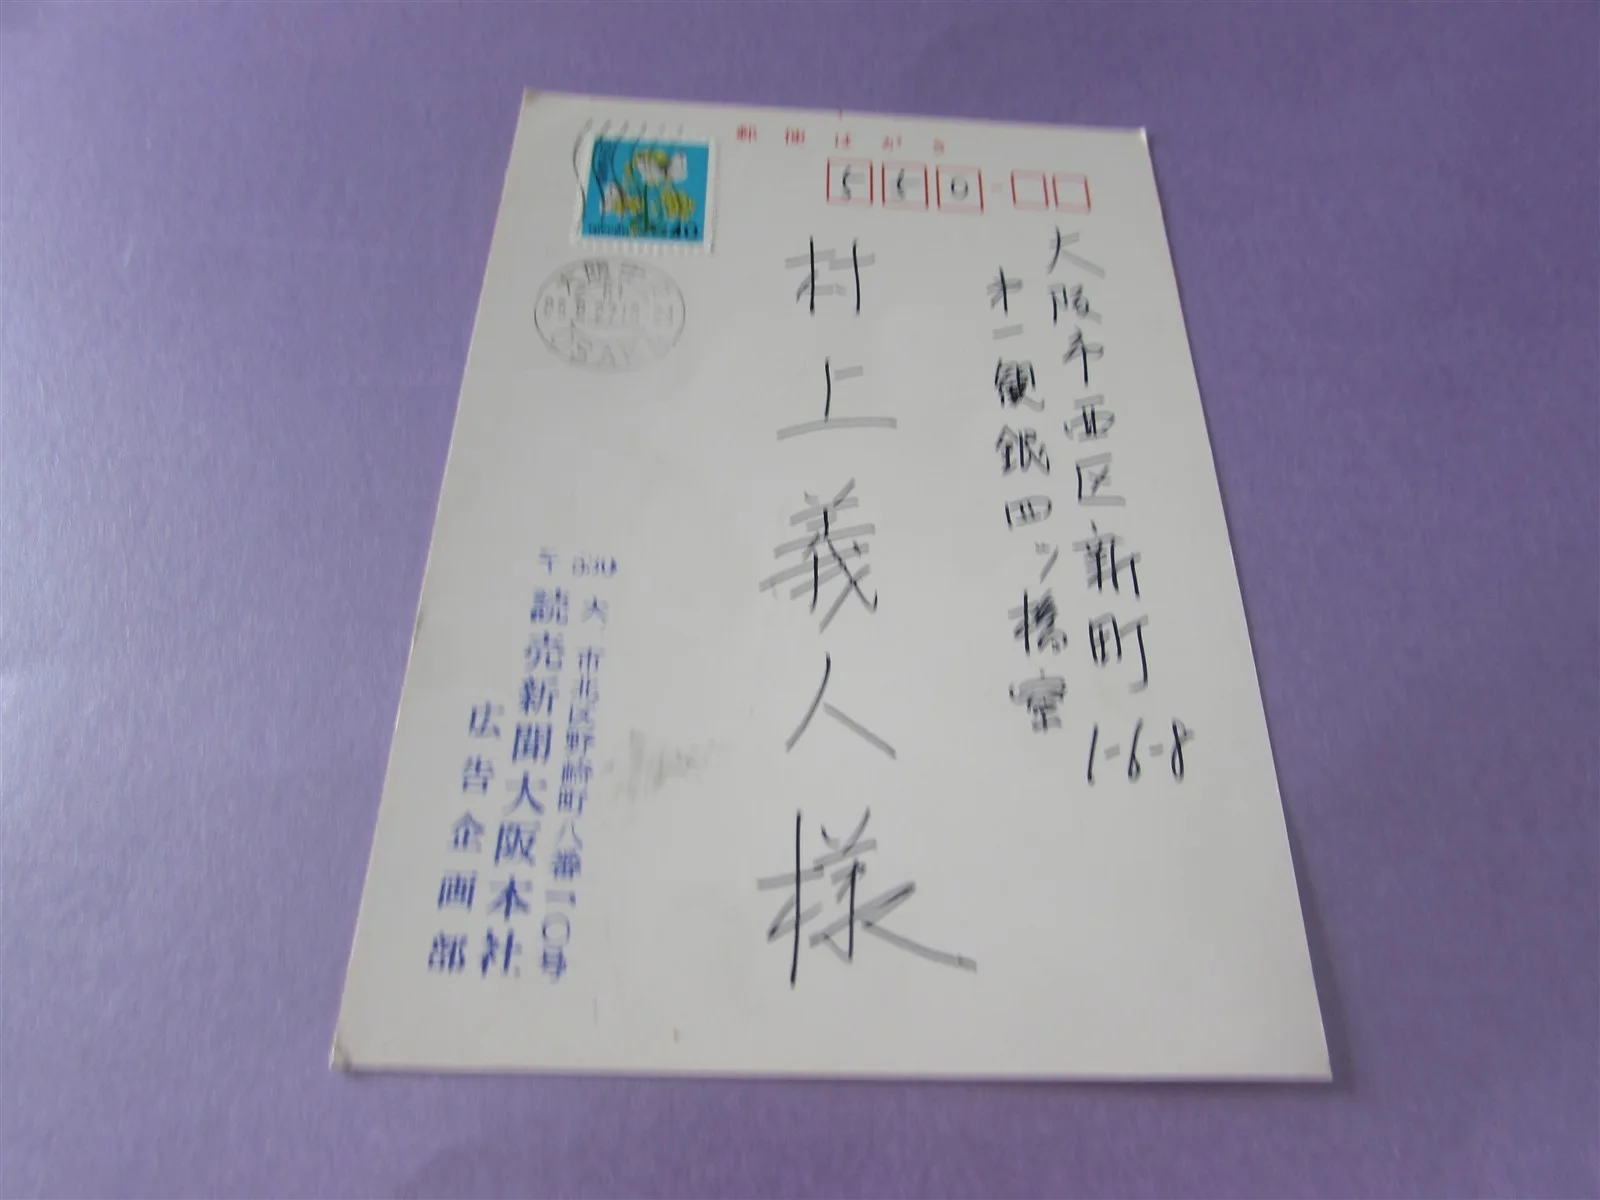 郵便はがき
550
大阪市西区新町
1-6-8
才一観銀四ツ橋室
村上義人様
〒530
大 市北区野崎町八番一〇号
読売新聞大阪本社
広告企画部
40